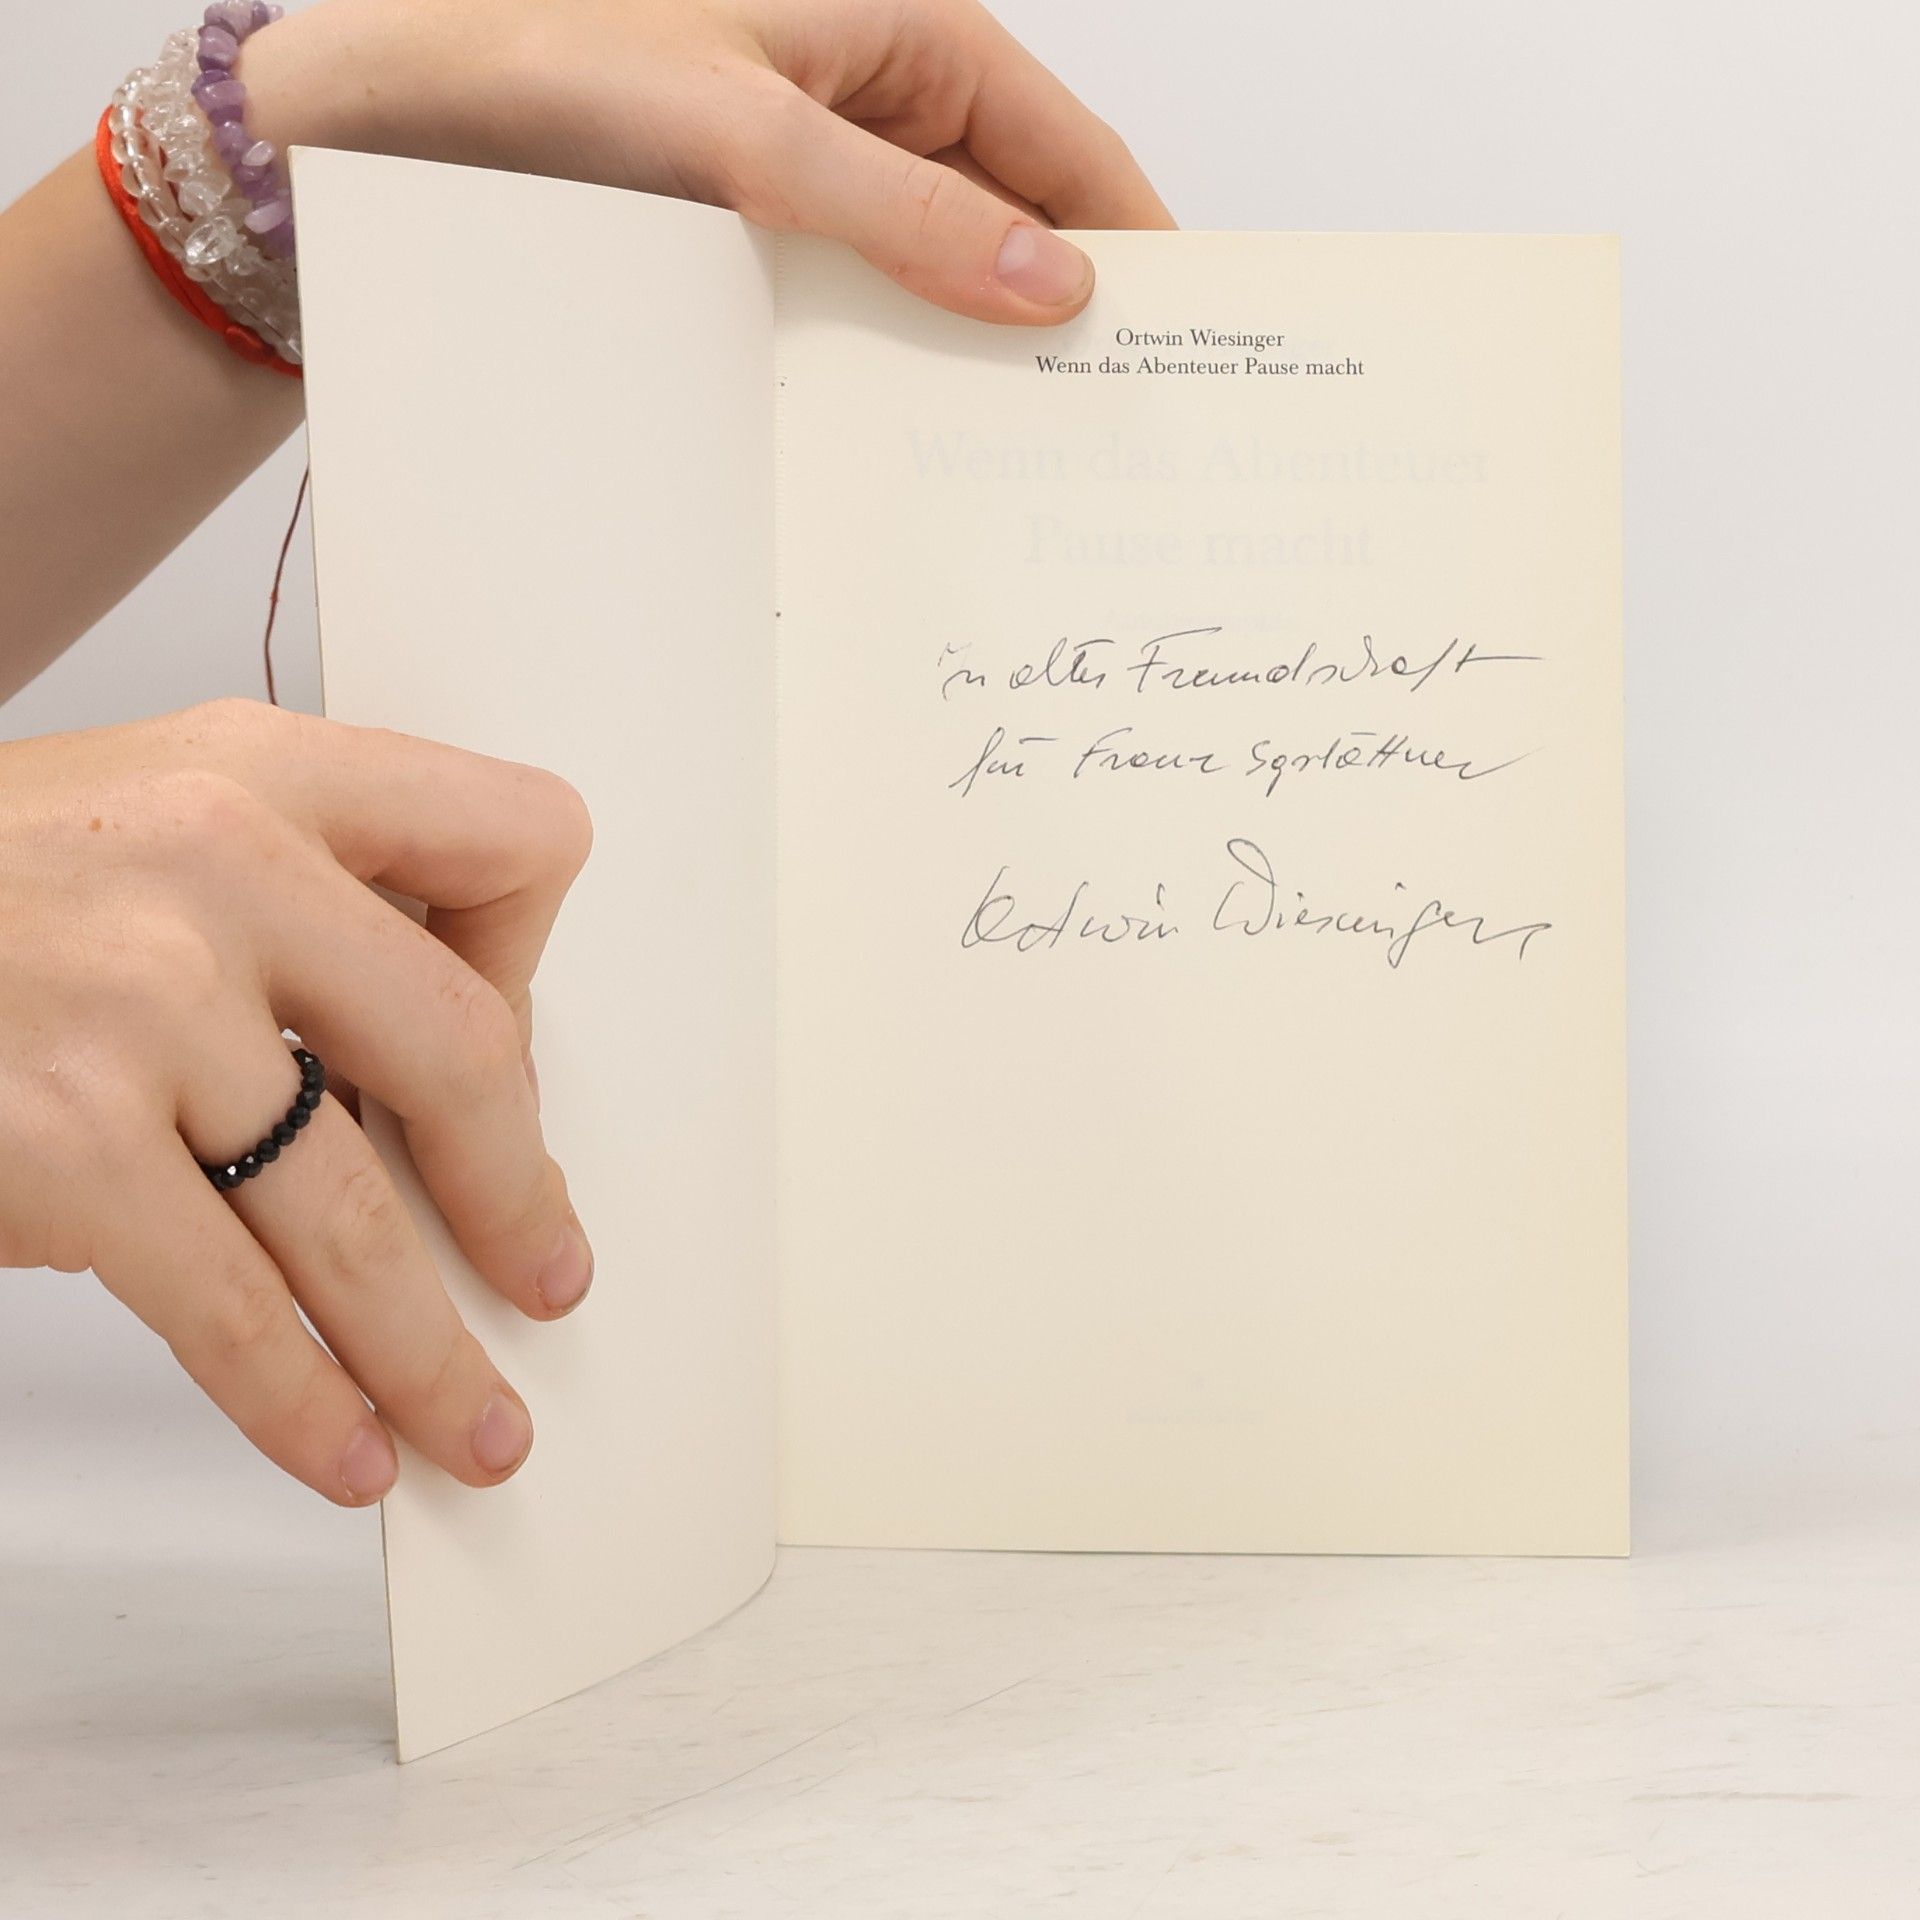 Ortwin Wiesinger
Wenn das Abenteuer Pause macht
Wenn das Abenteuer
Pause macht
In alter Freundschaft
für Franz
Ortwin Wiesinger